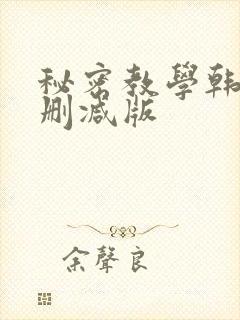 秘密教學韩
删減版
余聲良